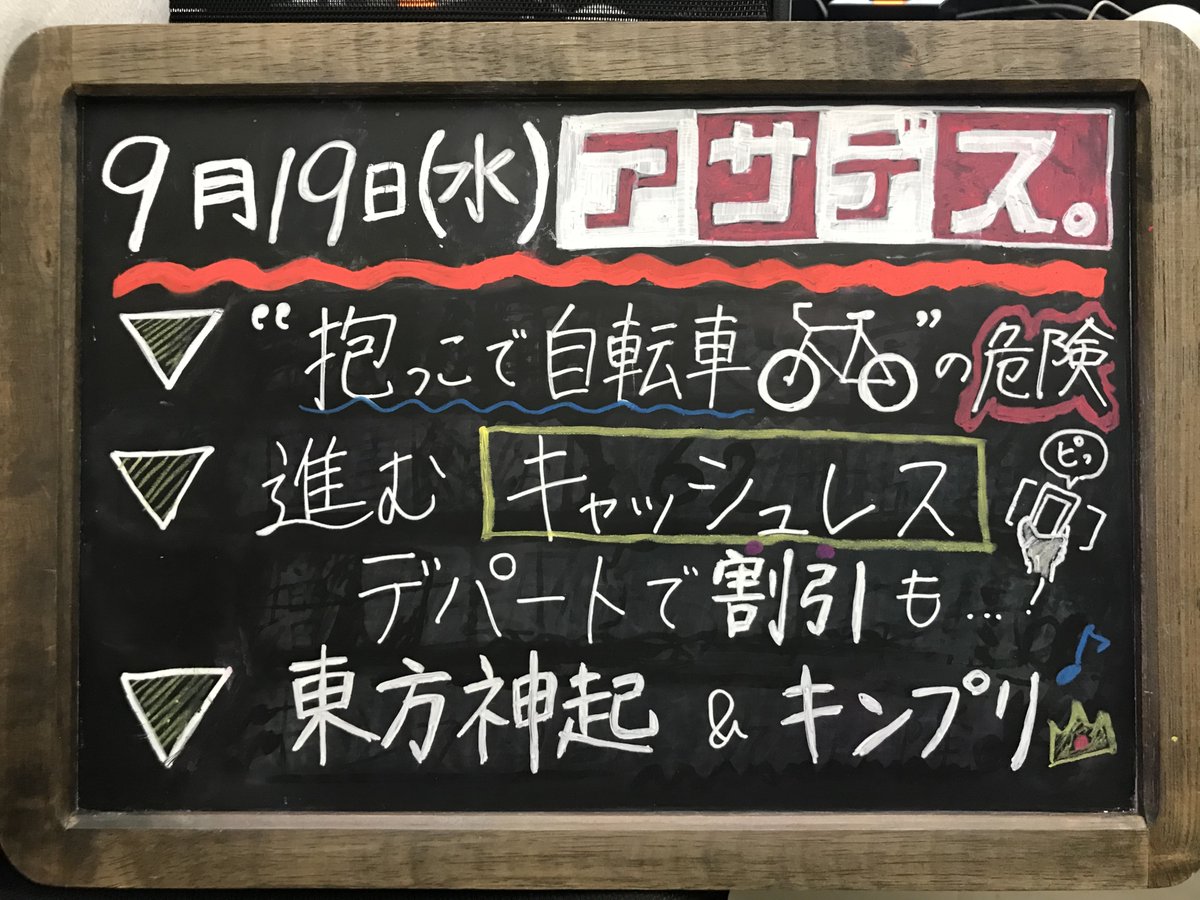 9月19日(水) アサデス。
▼ “抱っこで自転車”の危険
▼ 進む キャッシュレス
ピッ
デパートで割引も…!
▼ 東方神起 & キンプリ